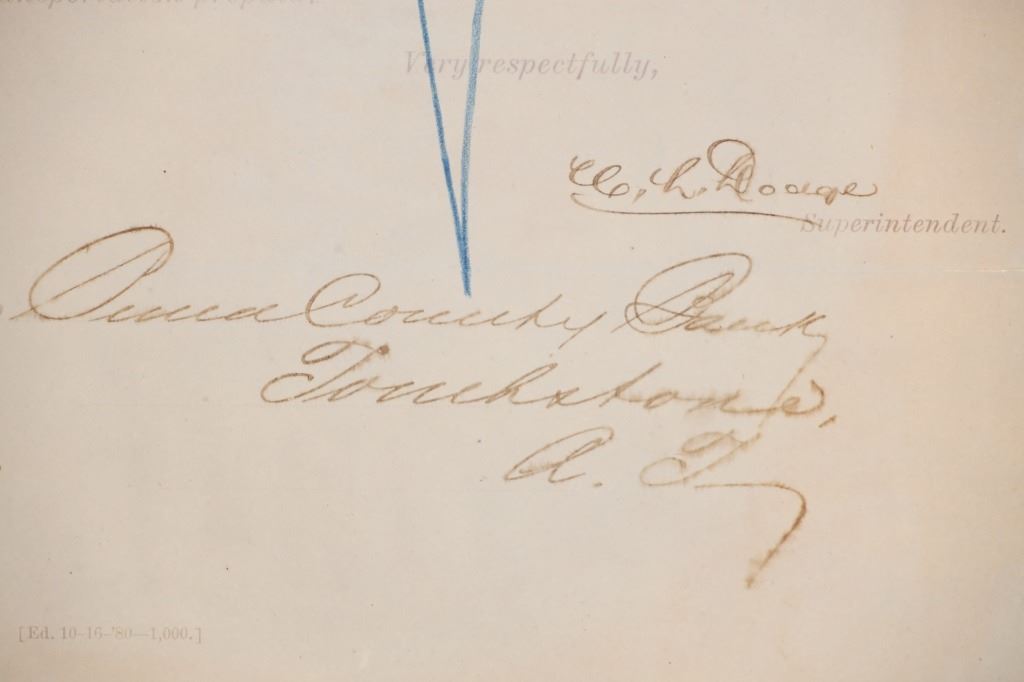 ansportation prepaid.
Very respectfully,
H. L. Dodge
Superintendent.
Pima County Bank,
Tombstone,
A. T.
[Ed. 10-16-'80—1,000.]